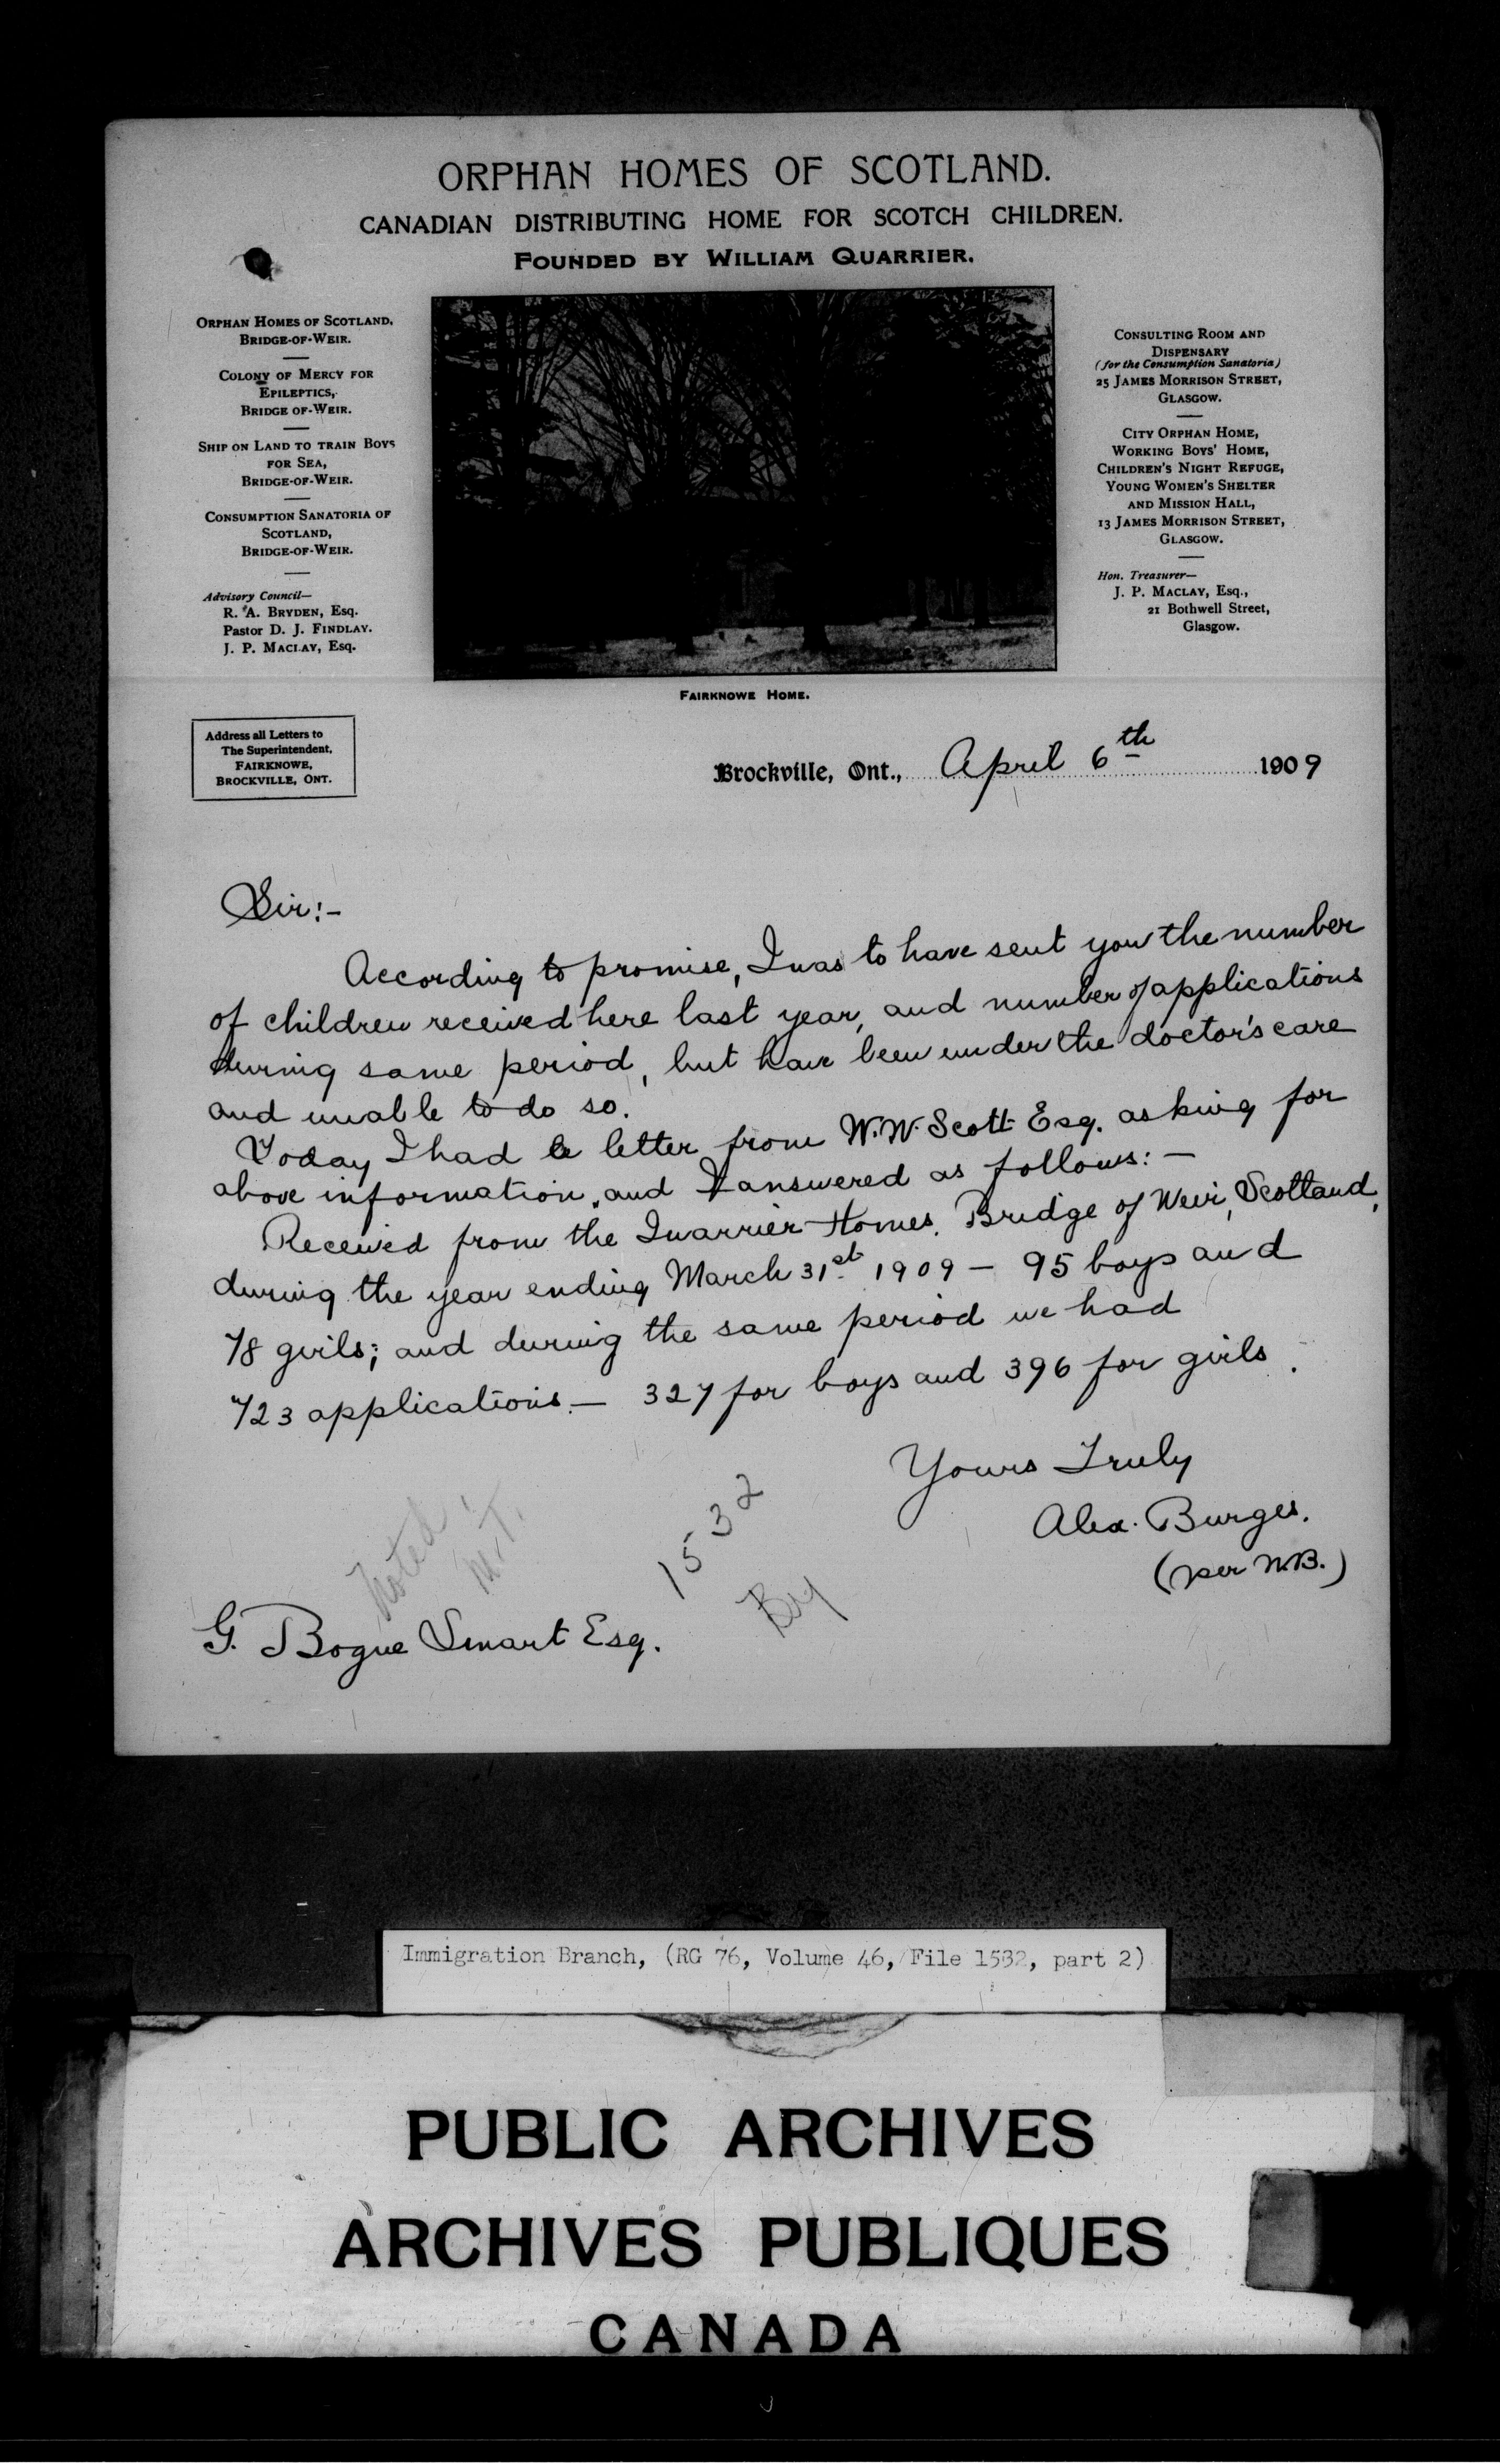 ORPHAN HOMES OF SCOTLAND.
CANADIAN DISTRIBUTING HOME FOR SCOTCH CHILDREN.
FOUNDED BY WILLIAM QUARRIER.
ORPHAN HOMES OF SCOTLAND,
BRIDGE-OF-WEIR.
COLONY OF MERCY FOR
EPILEPTICS,
BRIDGE OF-WEIR.
SHIP ON LAND TO TRAIN BOYS
FOR SEA,
BRIDGE-OF-WEIR.
CONSUMPTION SANATORIA OF
SCOTLAND,
BRIDGE-OF-WEIR.
Advisory Council—
R. A. BRYDEN, Esq.
Pastor D. J. FINDLAY.
J. P. MACLAY, Esq.
CONSULTING ROOM AND
DISPENSARY
(for the Consumption Sanatoria)
25 JAMES MORRISON STREET,
GLASGOW.
CITY ORPHAN HOME,
WORKING BOYS' HOME,
CHILDREN'S NIGHT REFUGE,
YOUNG WOMEN'S SHELTER
AND MISSION HALL,
13 JAMES MORRISON STREET,
GLASGOW.
Hon. Treasurer—
J. P. MACLAY, Esq.,
21 Bothwell Street,
Glasgow.
FAIRKNOWE HOME.
Address all Letters to
The Superintendent,
FAIRKNOWE,
BROCKVILLE, ONT.
Brockville, Ont., April 6th 1909
Sir:-
According to promise, I was to have sent you the number
of children received here last year, and number of applications
during same period, but have been under the doctor's care
and unable to do so.
Today I had a letter from W.W. Scott Esq. asking for
above information, and I answered as follows:-
Received from the Quarrier Homes, Bridge of Weir, Scotland,
during the year ending March 31st 1909 - 95 boys and
78 girls; and during the same period we had
723 applications. - 327 for boys and 396 for girls.
Yours Truly
Alex. Burges.
(per W.B.)
Noted
M.T.
1532
G. Bogue Smart Esq.
Immigration Branch, (RG 76, Volume 46, File 1532, part 2)
PUBLIC ARCHIVES
ARCHIVES PUBLIQUES
CANADA